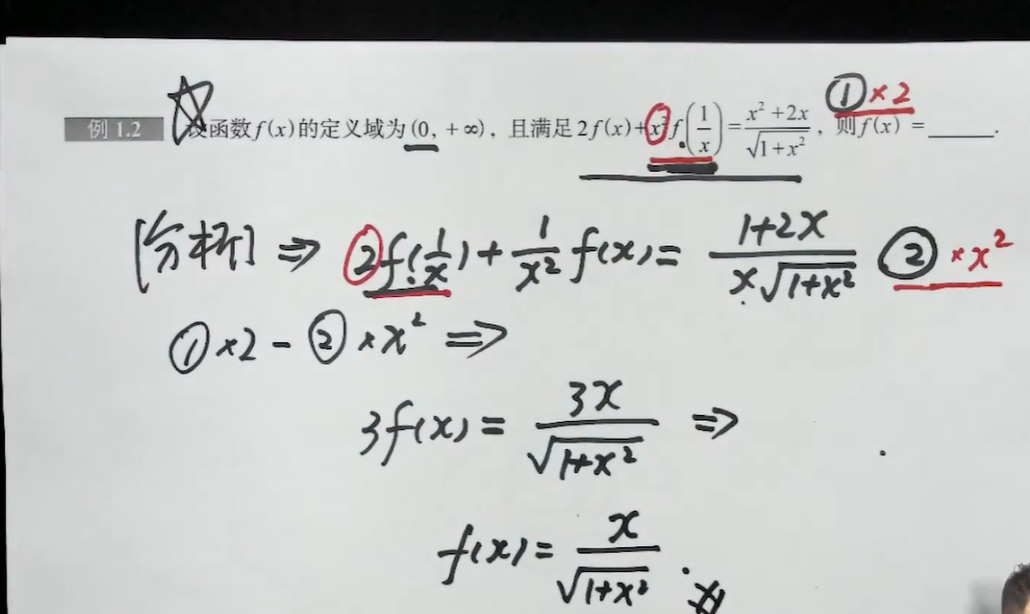 例 1.2 设函数f(x)的定义域为(0, +∞), 且满足2f(x)+x²f(1/x)=(x²+2x)/√(1+x²), 则f(x)=______. ①×2
[分析] ⇒ 2f(1/x)+1/x² f(x)=(1+2x)/(x√(1+x²)) ② ×x²
①×2-②×x² ⇒
3f(x)=3x/√(1+x²) ⇒
f(x)=x/√(1+x²).